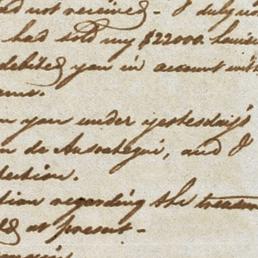 not received - I duly no
had sold my $22000. Louisi
debited you in account with
ome.
n your under yesterday's
n de Ansoategui, and I
lection.
tion regarding the treasur
at present -